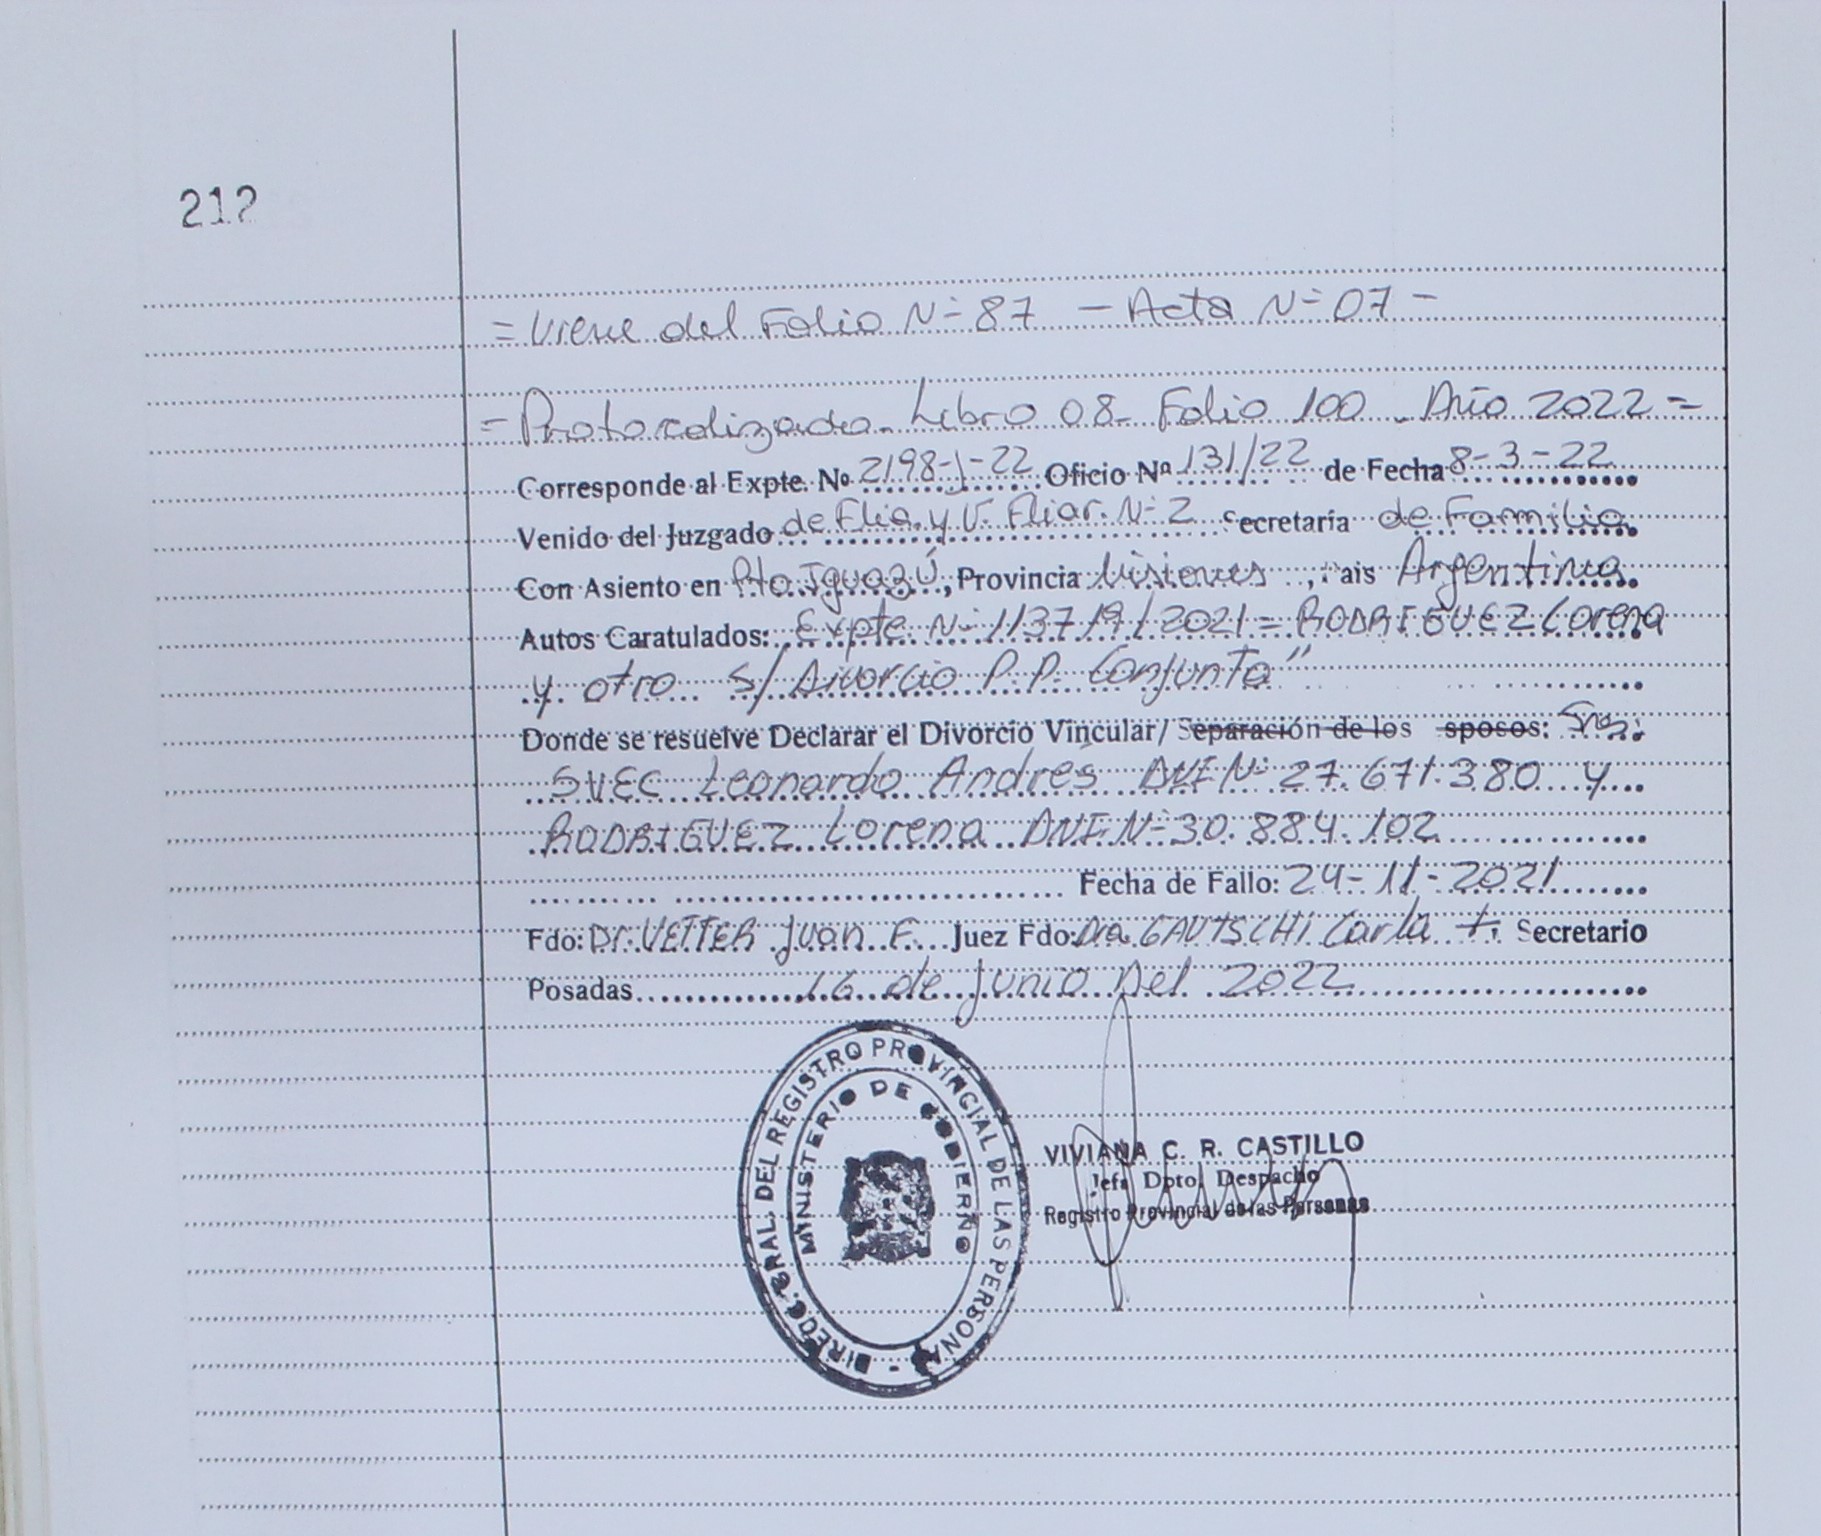 212
= Viene del Folio Nº 87 - Acta Nº 07 -
= Protocolizado. Libro 08- Folio 100 - Año 2022 =
Corresponde al Expte. Nº 2198-J-22 Oficio Nº 131/22 de Fecha 8-3-22
Venido del Juzgado de Flia. y V. Fliar. Nº 2 Secretaría de Familia.
Con Asiento en Pto Iguazú, Provincia Misiones, País Argentina.
Autos Caratulados: Expte Nº 113719/2021 = RODRIGUEZ Lorena
y otro s/ Divorcio P.P. Conjunta"
Donde se resuelve Declarar el Divorcio Vincular/ Separación de los sposos: Sres.
SVEC Leonardo Andrés DNI Nº 27.671.380 y
RODRIGUEZ Lorena DNI Nº 30.884.102
Fecha de Fallo: 24-11-2021
Fdo: Dr. VETTER Juan F. Juez Fdo: Dra. GAUTSCHI Carla Secretario
Posadas 16 de Junio Del 2022
DIRECC. GRAL. DEL REGISTRO PROVINCIAL DE LAS PERSONAS -
MINISTERIO DE GOBIERNO
VIVIANA C. R. CASTILLO
Jefa Dpto. Despacho
Registro Provincial de las Personas